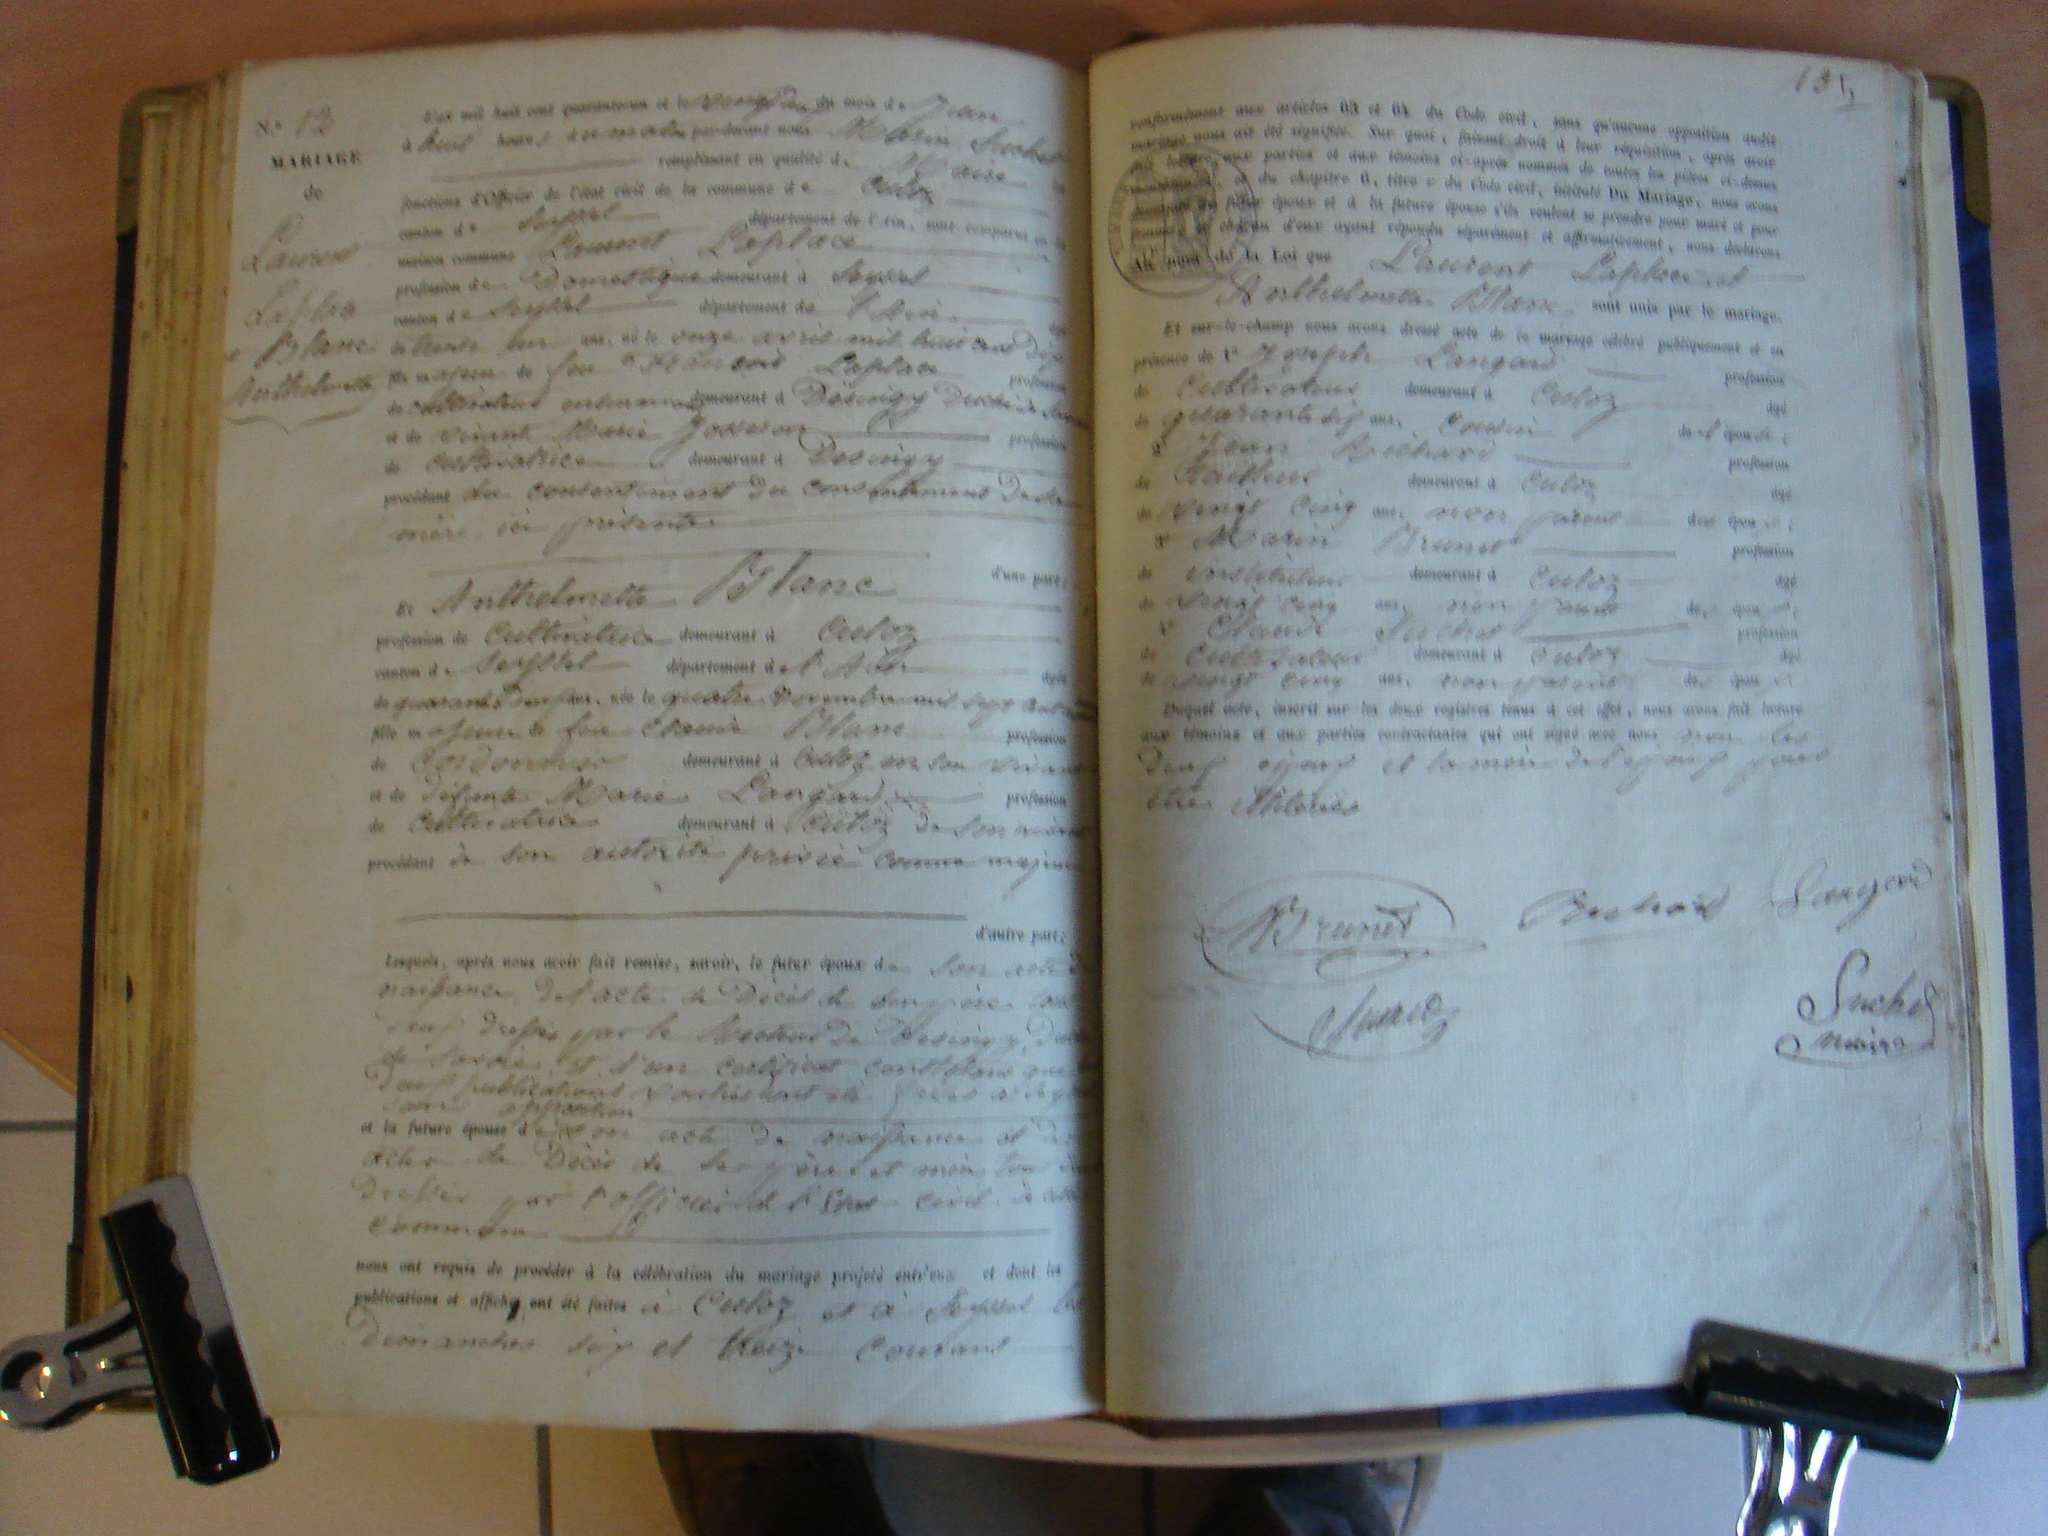 N.° 13
MARIAGE
de
Laurent
Laplace
et Blanc
Anthelmette
L'an mil huit cent quarante-un et le du mois de Juin
à huit heures du matin par-devant nous Marin Suchet
remplissant en qualité de Maire les
fonctions d'Officier de l'état civil de la commune de Culoz
canton de Seyssel département de l'Ain, sont comparus en la
maison commune Laurent Laplace
profession de Domestique demeurant à Seyssel
canton de Seyssel département de l'Ain. âgé
de trente un ans, né le onze avril mil huit cent dix
fils majeur de feu François Laplace profession
de cultivateur demeurant à Désingy Duché de Savoie
et de vivante Marie profession
de cultivatrice demeurant à Désingy
procédant du consentement du consentement de sa
mère ici présente
d'une part;
Et Anthelmette Blanc
profession de cultivatrice demeurant à Culoz
canton de Seyssel département de l'Ain âgée
de quarante ans, née le quatre novembre mil sept cent
fille majeure de feu Blanc profession
de Cordonnier demeurant à Culoz en son vivant
et de défunte Marie Langard profession
de Cultivatrice demeurant à Culoz de son vivant
procédant de son autorité privée comme majeure
d'autre part;
Lesquels, après nous avoir fait remise, savoir, le futur époux de son acte de
naissance, de l'acte de Décès de son père tous
deux dressés par le Recteur de Désingy, Duché
de Savoie, et d'un certificat constatant que
deux publications faites à Seyssel
sans opposition
et la future épouse de son acte de naissance et des
actes de Décès de ses père et mère, tous
dressés par l'officier de l'État civil de cette
commune
nous ont requis de procéder à la célébration du mariage projeté entr'eux et dont les
publications et affiches ont été faites à Culoz et à Seyssel les
Dimanches six et treize courant
131
conformément aux articles 63 et 64 du Code civil, sans qu'aucune opposition audit
mariage nous ait été signifiée. Sur quoi, faisant droit à leur réquisition, après avoir
fait lecture aux parties et aux témoins ci-après nommés de toutes les pièces ci-dessus
mentionnées, et du chapitre 6, titre v du Code civil, intitulé Du Mariage, nous avons
demandé au futur époux et à la future épouse s'ils veulent se prendre pour mari et pour
femme, et chacun d'eux ayant répondu séparément et affirmativement, nous déclarons
Au nom de la Loi que Laurent Laplace et
Anthelmette Blanc sont unis par le mariage.
Et sur-le-champ nous avons dressé acte de ce mariage célébré publiquement et en
présence de 1° Joseph Langard profession
de Cultivateur demeurant à Culoz âgé
de quarante six ans, cousin de l'épouse;
2° Jean Richard profession
de Tailleur demeurant à Culoz âgé
de vingt cinq ans, non parent des époux;
3° Marin Brunet profession
de instituteur demeurant à Culoz âgé
de vingt cinq ans, non parent des époux;
4° Claude Suchet profession
de Cultivateur demeurant à Culoz âgé
de vingt cinq ans, non parent des époux.
Duquel acte, inscrit sur les deux registres tenus à cet effet, nous avons fait lecture
aux témoins et aux parties contractantes qui ont signé avec nous non les
deux époux et la mère de l'époux pour
être illitérés
Brunet Richard Langard
Suchet
maire